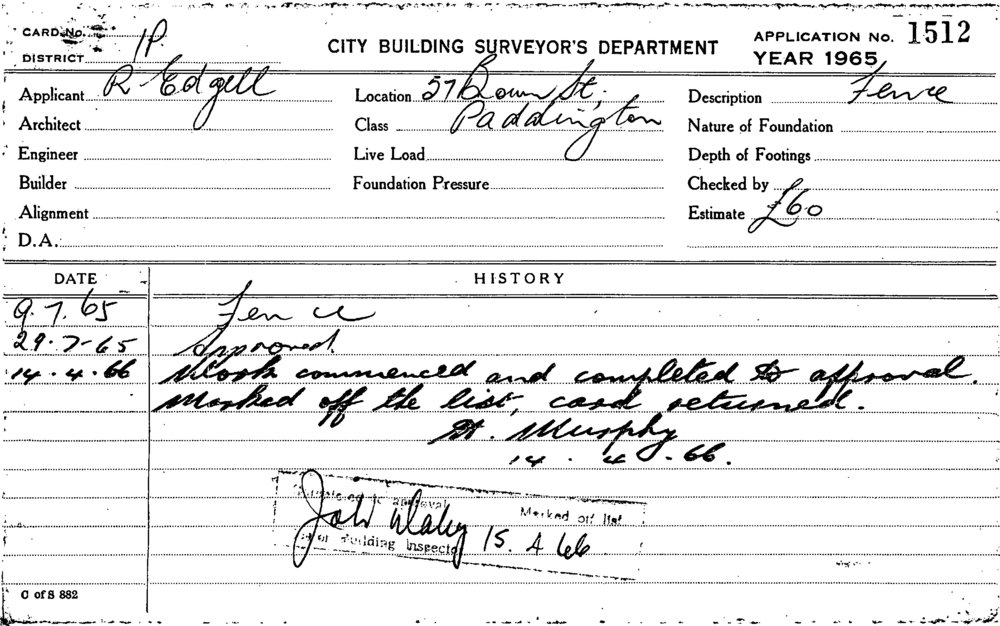 CARD No.
1P.
CITY BUILDING SURVEYOR'S DEPARTMENT
APPLICATION No. 1512
DISTRICT
YEAR 1965
Applicant R Edgell
Location 57 Bown St,
Description Fence
Architect
Class Paddington
Nature of Foundation
Engineer
Live Load
Depth of Footings
Builder
Foundation Pressure
Checked by
Alignment
Estimate £60
D.A.
DATE
HISTORY
9.7.65 Fence
29-7-65 Approved.
14.4.66 Work commenced and completed to approval.
Marked off the list, card returned.
Murphy
14.4.66.
to approval
Marked off list
John 15.4 66
Building Inspector
C of S 882